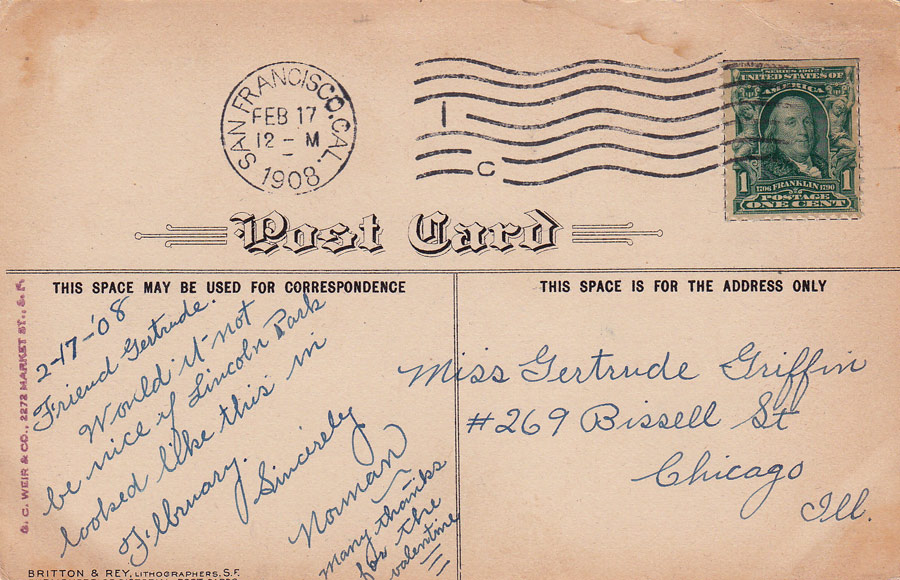 SAN FRANCISCO, CAL.
FEB 17
12 - M
1908
1
C
SERIES 1902
UNITED STATES OF
AMERICA
1796 FRANKLIN 1790
POSTAGE
1 ONE CENT 1
Post Card
THIS SPACE MAY BE USED FOR CORRESPONDENCE
2-17-'08
Friend Gertrude.
Would it not
be nice if Lincoln Park
looked like this in
February.
Sincerely
Norman
Many thanks
for the
valentine
THIS SPACE IS FOR THE ADDRESS ONLY
Miss Gertrude Griffin
#269 Bissell St
Chicago
Ill.
G. C. WEIR & CO., 2272 MARKET ST., S. F.
BRITTON & REY, LITHOGRAPHERS, S.F.